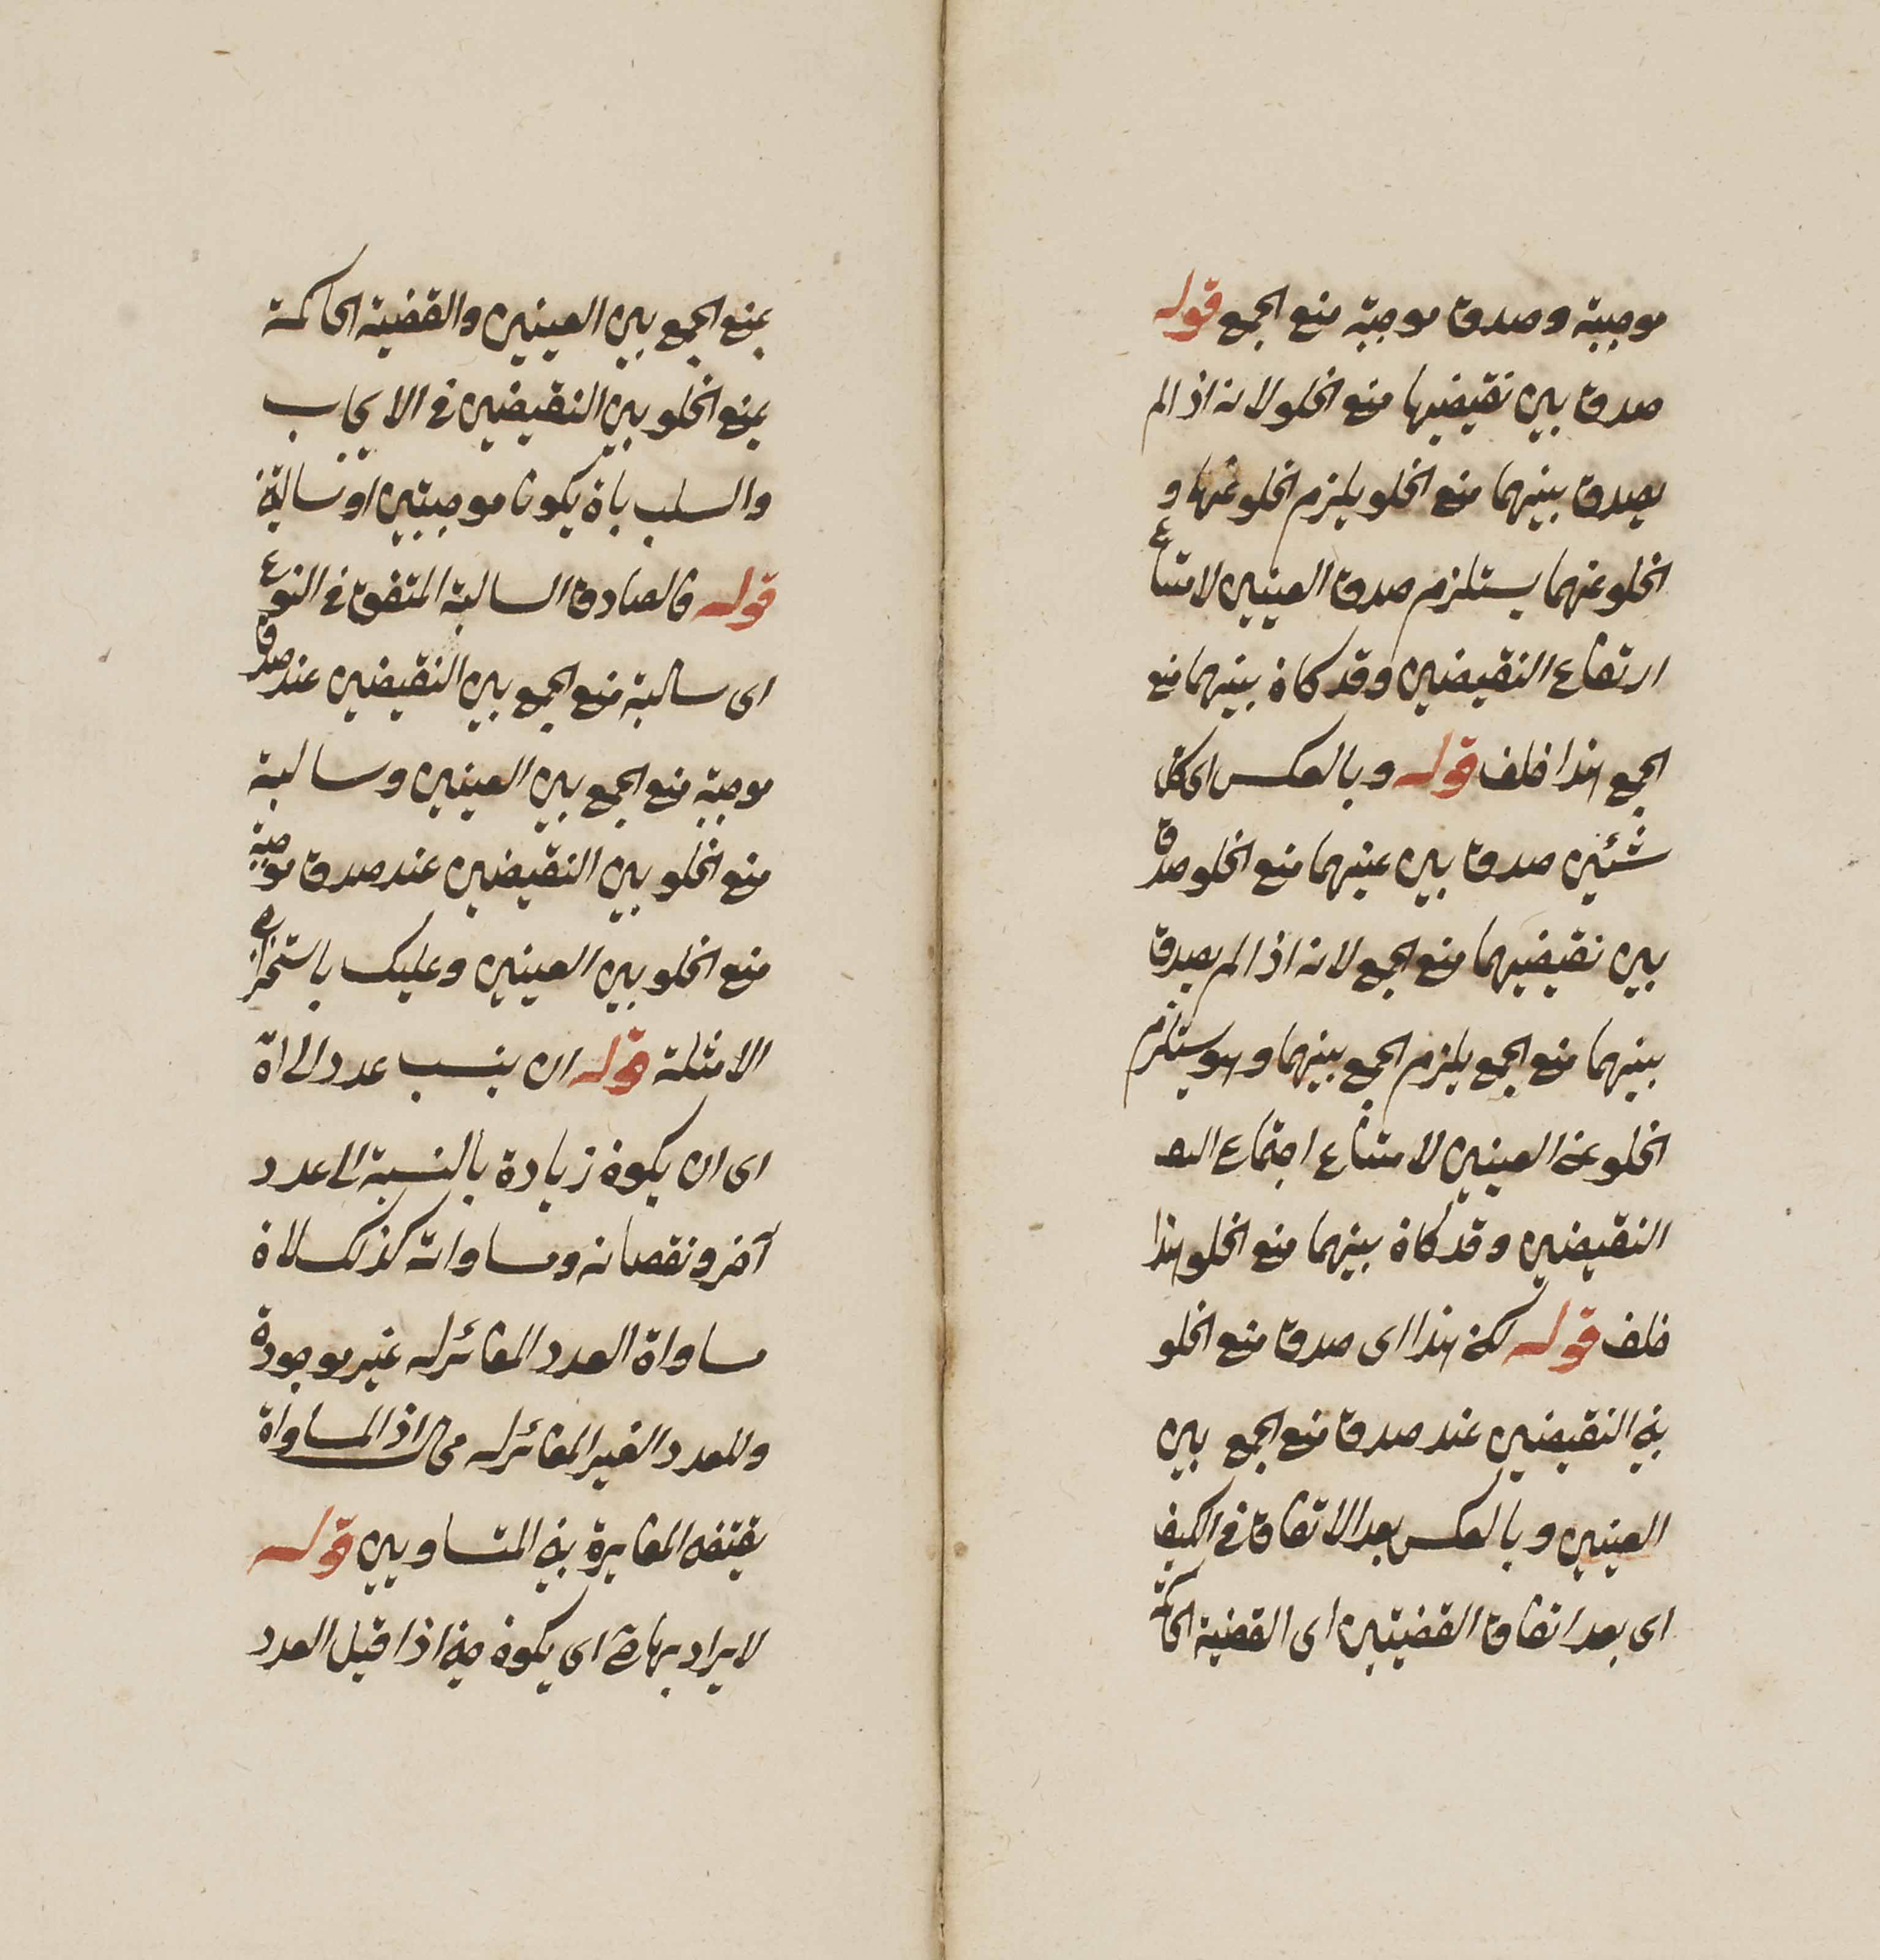 موجبة وصدق موجبة منع الجمع قوله
صدق بين نقيضيها منع الخلو لانه اذا لم
يصدق بينهما منع الخلو يلزم الخلو عنها و
الخلو عنهما يستلزم صدق العينين لامتناع
ارتفاع النقيضين وقد كان بينهما منع
الجمع هذا خلف قوله وبالعكس اى كل
شئين صدق بين عينهما منع الخلو صدق
بين نقيضيهما منع الجمع لانه اذا لم يصدق
بينهما منع الجمع يلزم الجمع بينهما وهو يستلزم
الخلو عن العينين لامتناع اجتماع
النقيضين وقد كان بينهما منع الخلو هذا
خلف قوله لكن هذا اى صدق منع الخلو
بين النقيضين عند صدق منع الجمع بين
العينين وبالعكس بعد الاتفاق فى الكيف
اى بعد اتفاق القضيتين اى القضية الحاكمة
بمنع الجمع بين العينين والقضية الحاكمة
بمنع الخلو بين النقيضين فى الايجاب
والسلب بان يكونا موجبتين او سالبة
قوله فالصادق السالبة المتفق فى النوع
اى سالبة منع الجمع بين النقيضين عند صدق
موجبة منع الجمع بين العينين وسالبة
منع الخلو بين النقيضين عند صدق موجبة
منع الخلو بين العينين وعليك باستخراج
الامثلة قوله ان ينسب عدد الى ان
اى ان يكون زيادة بالنسبة الى عدد
آخر ونقصانه ومساواته كذلك لان
مساواة العدد المغائر له غير موجودة
وللعدد الغير المغائر له محال اذ المساواة
يقتضى المغايرة بين المتساويين قوله
لا يراد بهاتى اى يكون مين اذا قيل العدد